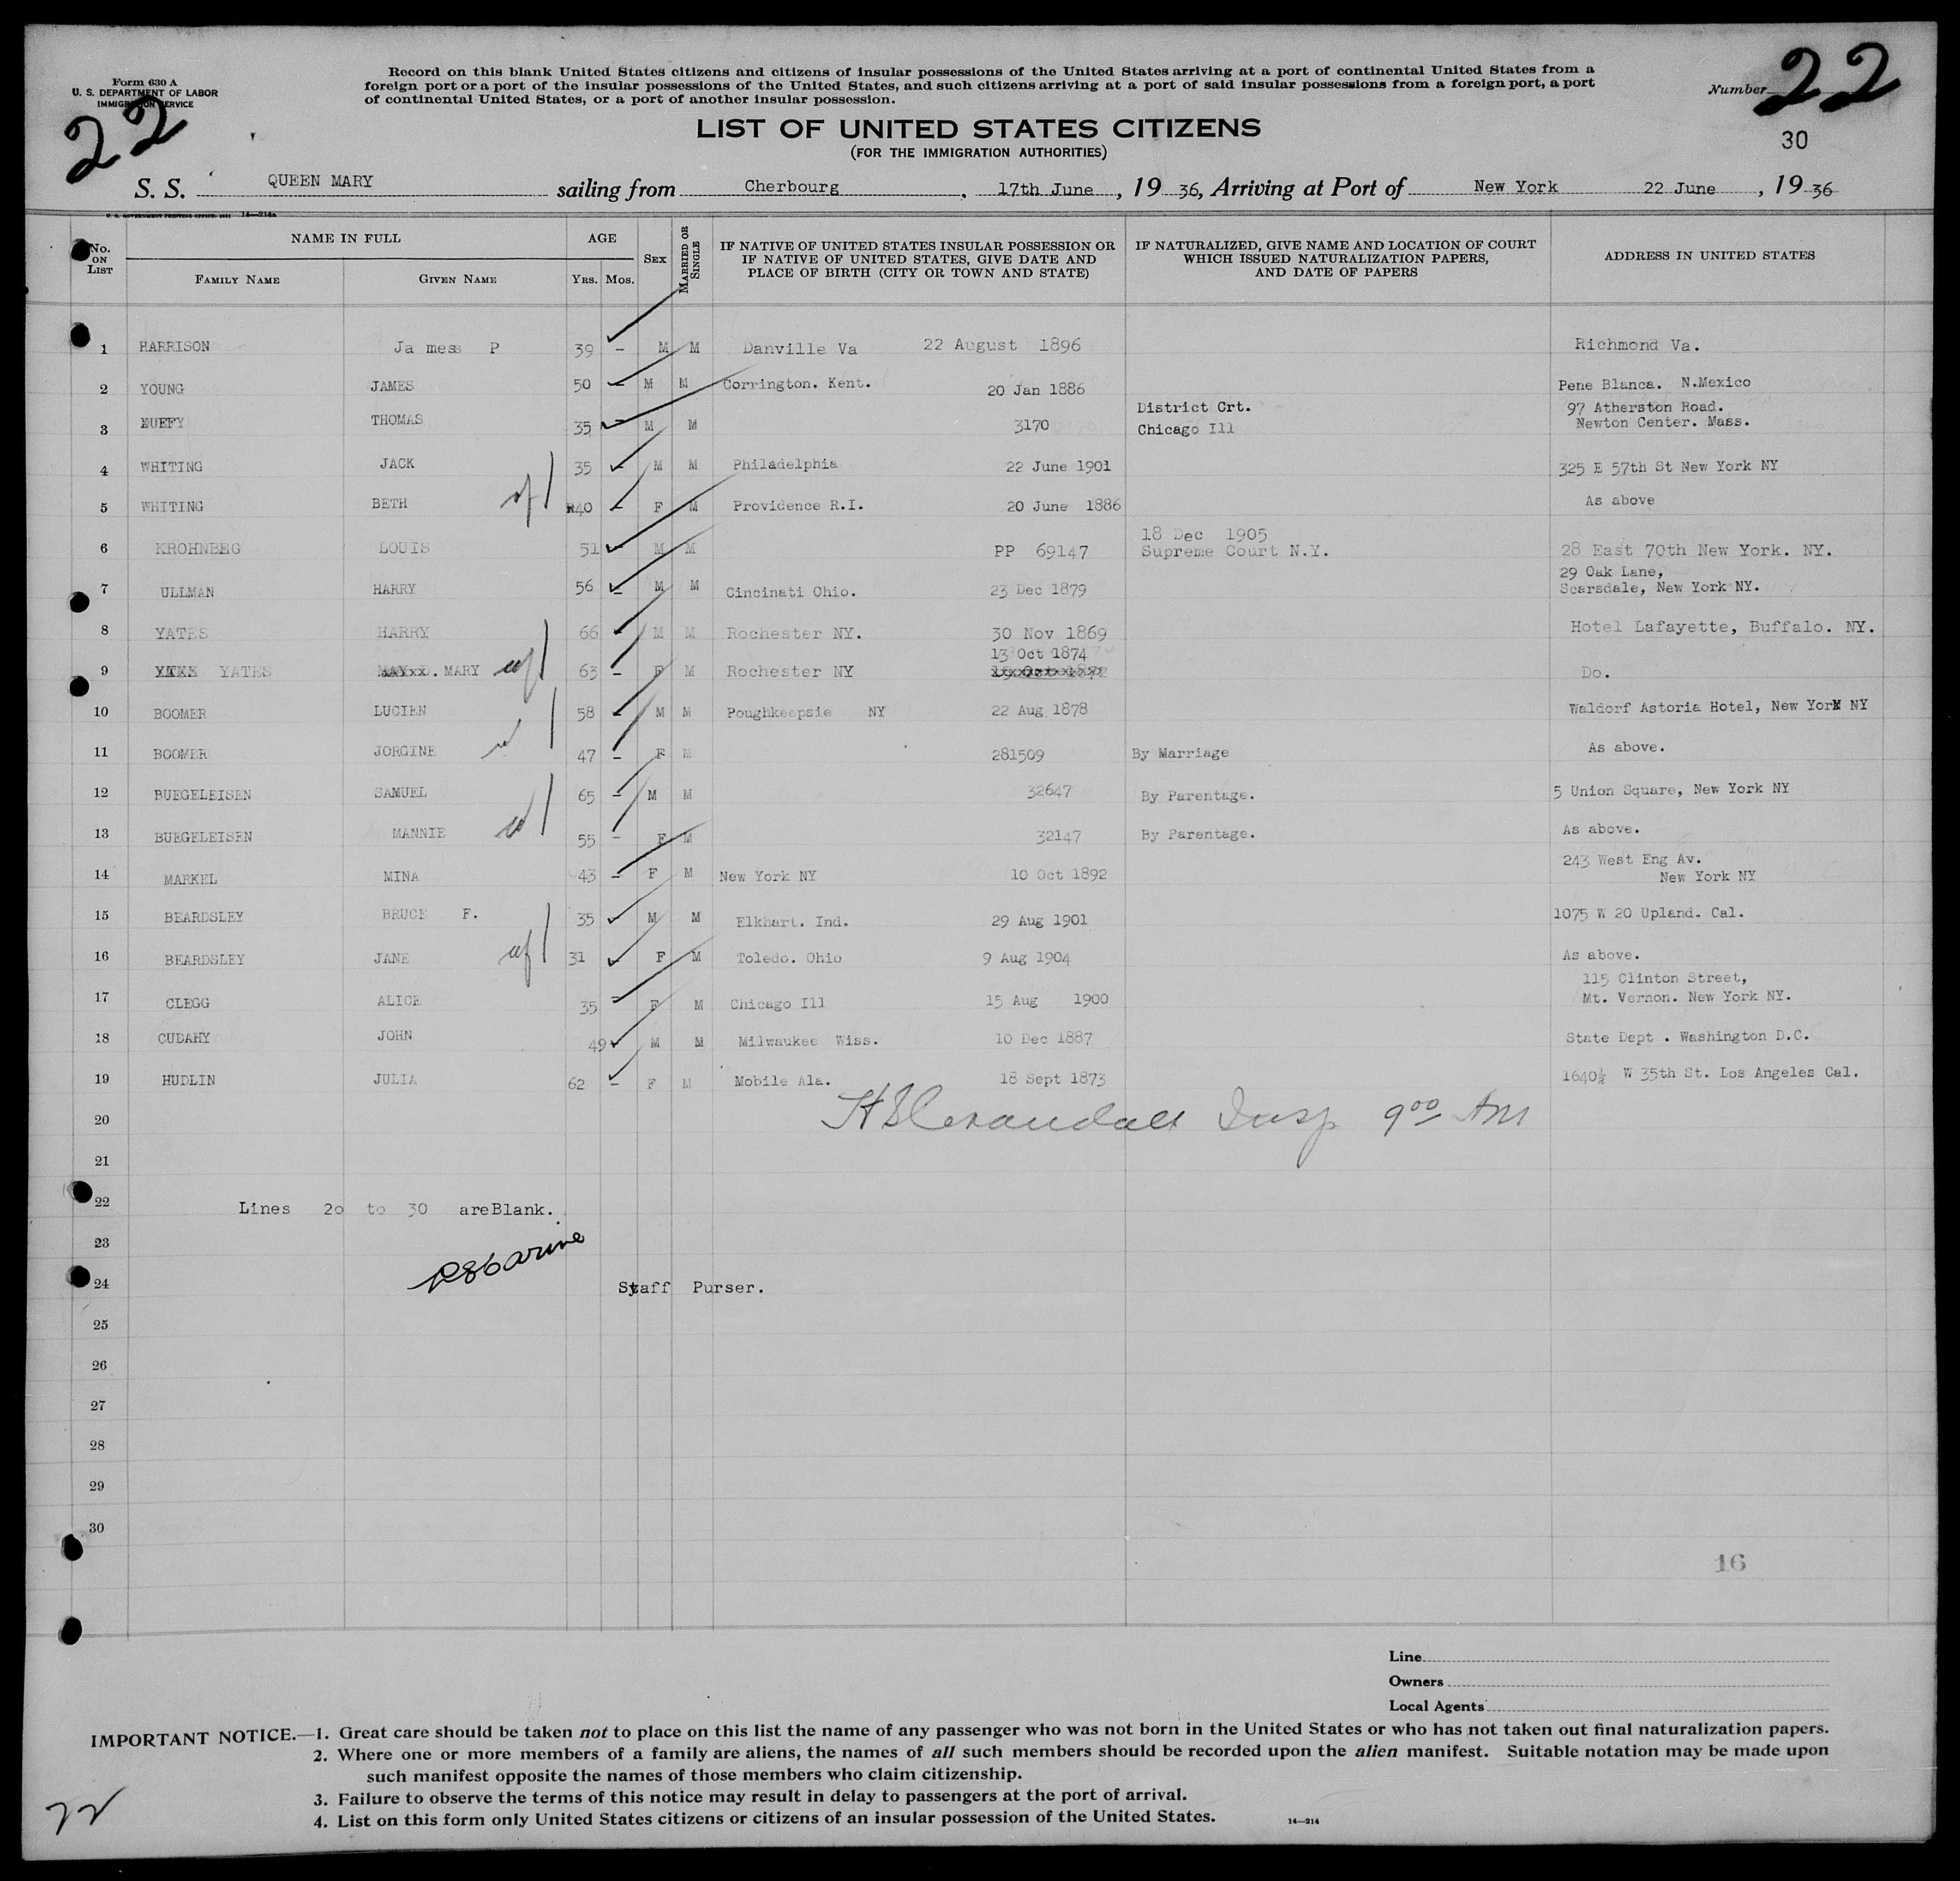 Form 630 A
U. S. DEPARTMENT OF LABOR
IMMIGRATION SERVICE
22
Record on this blank United States citizens and citizens of insular possessions of the United States arriving at a port of continental United States from a
foreign port or a port of the insular possessions of the United States, and such citizens arriving at a port of said insular possessions from a foreign port, a port
of continental United States, or a port of another insular possession.
Number 22
30
LIST OF UNITED STATES CITIZENS
(FOR THE IMMIGRATION AUTHORITIES)
S. S. QUEEN MARY sailing from Cherbourg, 17th June, 19 36, Arriving at Port of New York 22 June, 19 36
U. S. GOVERNMENT PRINTING OFFICE: 1931 14—214a
No. ON LIST
NAME IN FULL
FAMILY NAME GIVEN NAME
AGE
YRS. MOS.
SEX
MARRIED OR SINGLE
IF NATIVE OF UNITED STATES INSULAR POSSESSION OR
IF NATIVE OF UNITED STATES, GIVE DATE AND
PLACE OF BIRTH (CITY OR TOWN AND STATE)
IF NATURALIZED, GIVE NAME AND LOCATION OF COURT
WHICH ISSUED NATURALIZATION PAPERS,
AND DATE OF PAPERS
ADDRESS IN UNITED STATES
1 HARRISON Ja mess P 39 – M M Danville Va 22 August 1896 Richmond Va.
2 YOUNG JAMES 50 – M M Corrington. Kent. 20 Jan 1886 Pene Blanca. N.Mexico
3 DUFFY THOMAS 35 – M M 3170 District Crt. 97 Atherston Road.
Chicago Ill Newton Center. Mass.
4 WHITING JACK 35 – M M Philadelphia 22 June 1901 325 E 57th St New York NY
5 WHITING BETH 40 – F M Providence R.I. 20 June 1886 As above
6 KROHNBEG LOUIS 51 – M M PP 69147 18 Dec 1905
Supreme Court N.Y. 28 East 70th New York. NY.
7 ULLMAN HARRY 56 – M M Cincinati Ohio. 23 Dec 1879 29 Oak Lane,
Scarsdale, New York NY.
8 YATES HARRY 66 – M M Rochester NY. 30 Nov 1869 Hotel Lafayette, Buffalo. NY.
13 Oct 1874
9 YATES MARY 63 – F M Rochester NY Do.
10 BOOMER LUCIEN 58 – M M Poughkeepsie NY 22 Aug 1878 Waldorf Astoria Hotel, New York NY
11 BOOMER JORGINE 47 – F M 281509 By Marriage As above.
12 BUEGELEISEN SAMUEL 65 – M M 32647 By Parentage. 5 Union Square, New York NY
13 BUEGELEISEN MANNIE 55 – F M 32147 By Parentage. As above.
14 MARKEL MINA 43 – F M New York NY 10 Oct 1892 243 West Eng Av.
New York NY
15 BEARDSLEY BRUCE F. 35 – M M Elkhart. Ind. 29 Aug 1901 1075 W 20 Upland. Cal.
16 BEARDSLEY JANE 31 – F M Toledo. Ohio 9 Aug 1904 As above.
17 CLEGG ALICE 35 – F M Chicago Ill 15 Aug 1900 115 Clinton Street,
Mt. Vernon. New York NY.
18 CUDAHY JOHN 49 M M Milwaukee Wiss. 10 Dec 1887 State Dept . Washington D.C.
19 HUDLIN JULIA 62 – F M Mobile Ala. 18 Sept 1873 1640½ W 35th St. Los Angeles Cal.
20 Insp 9 00 AM
21
22 Lines 2o to 30 areBlank.
23
24 Staff Purser.
25
26
27
28
29
30
16
Line
Owners
Local Agents
IMPORTANT NOTICE.—1. Great care should be taken not to place on this list the name of any passenger who was not born in the United States or who has not taken out final naturalization papers.
2. Where one or more members of a family are aliens, the names of all such members should be recorded upon the alien manifest. Suitable notation may be made upon
such manifest opposite the names of those members who claim citizenship.
3. Failure to observe the terms of this notice may result in delay to passengers at the port of arrival.
4. List on this form only United States citizens or citizens of an insular possession of the United States.
14—214
22